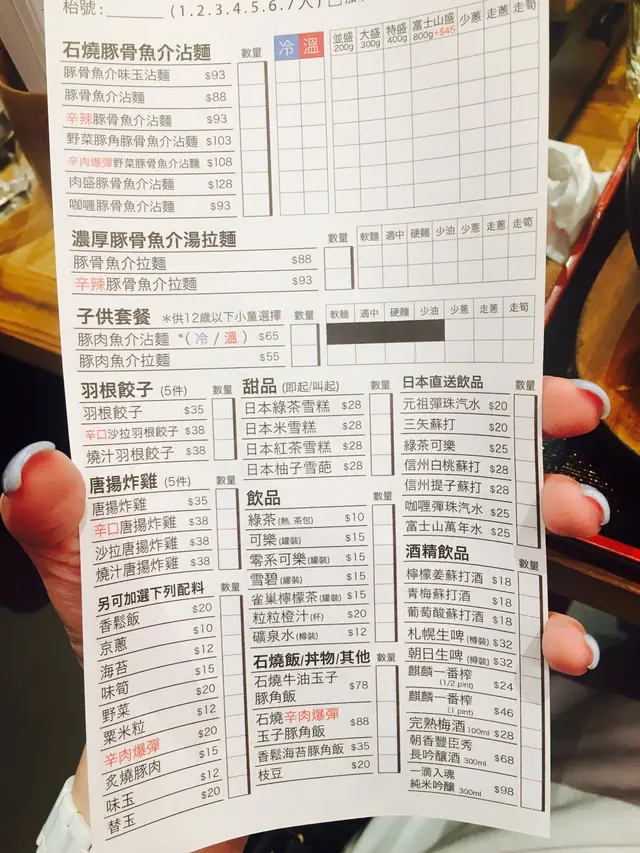 枱號:
(1.2.3.4.5.6.7人)
石燒豚骨魚介沾麵 數量 冷 溫 並盛 200g 大盛 300g 特盛 400g 富士山盛 800g+$45 少蔥 走蔥 走筍
豚骨魚介味玉沾麵 $93
豚骨魚介沾麵 $88
辛辣豚骨魚介沾麵 $93
野菜豚角豚骨魚介沾麵 $103
辛肉爆彈野菜豚骨魚介沾麵 $108
肉盛豚骨魚介沾麵 $128
咖喱豚骨魚介沾麵 $93
濃厚豚骨魚介湯拉麵 數量 軟麵 適中 硬麵 少油 少蔥 走蔥 走筍
豚骨魚介拉麵 $88
辛辣豚骨魚介拉麵 $93
子供套餐 *供12歲以下小童選擇 數量 軟麵 適中 硬麵 少油 少蔥 走蔥 走筍
豚肉魚介沾麵 *(冷/溫) $65
豚肉魚介拉麵 $55
羽根餃子 (5件) 數量
羽根餃子 $35
辛口沙拉羽根餃子 $38
燒汁羽根餃子 $38
唐揚炸雞 (5件) 數量
唐揚炸雞 $35
辛口唐揚炸雞 $38
沙拉唐揚炸雞 $38
燒汁唐揚炸雞 $38
另可加選下列配料 數量
香鬆飯 $20
京蔥 $10
海苔 $12
味筍 $15
野菜 $20
粟米粒 $12
辛肉爆彈 $20
炙燒豚肉 $15
味玉 $12
替玉 $20
甜品 (即起/叫起) 數量
日本綠茶雪糕 $28
日本米雪糕 $28
日本紅茶雪糕 $28
日本柚子雪葩 $28
飲品 數量
綠茶(熱, 茶包) $10
可樂(罐裝) $15
零系可樂(罐裝) $15
雪碧(罐裝) $15
雀巢檸檬茶(罐裝) $15
粒粒橙汁(杯) $20
礦泉水(樽裝) $12
石燒飯/丼物/其他 數量
石燒牛油玉子
豚角飯 $78
石燒辛肉爆彈
玉子豚角飯 $88
香鬆海苔豚角飯 $35
枝豆 $20
日本直送飲品 數量
元祖彈珠汽水 $20
三矢蘇打 $20
綠茶可樂 $25
信州白桃蘇打 $28
信州提子蘇打 $28
咖喱彈珠汽水 $25
富士山萬年水 $25
酒精飲品 數量
檸檬姜蘇打酒 $18
青梅蘇打酒 $18
葡萄酸蘇打酒 $18
札幌生啤 (樽裝) $32
朝日生啤 (樽裝) $32
麒麟一番榨
(1/2 pint) $24
麒麟一番榨
(1 pint) $46
完熟梅酒 100ml $28
朝香豐臣秀
長吟釀酒 300ml $68
一滴入魂
純米吟釀 300ml $98